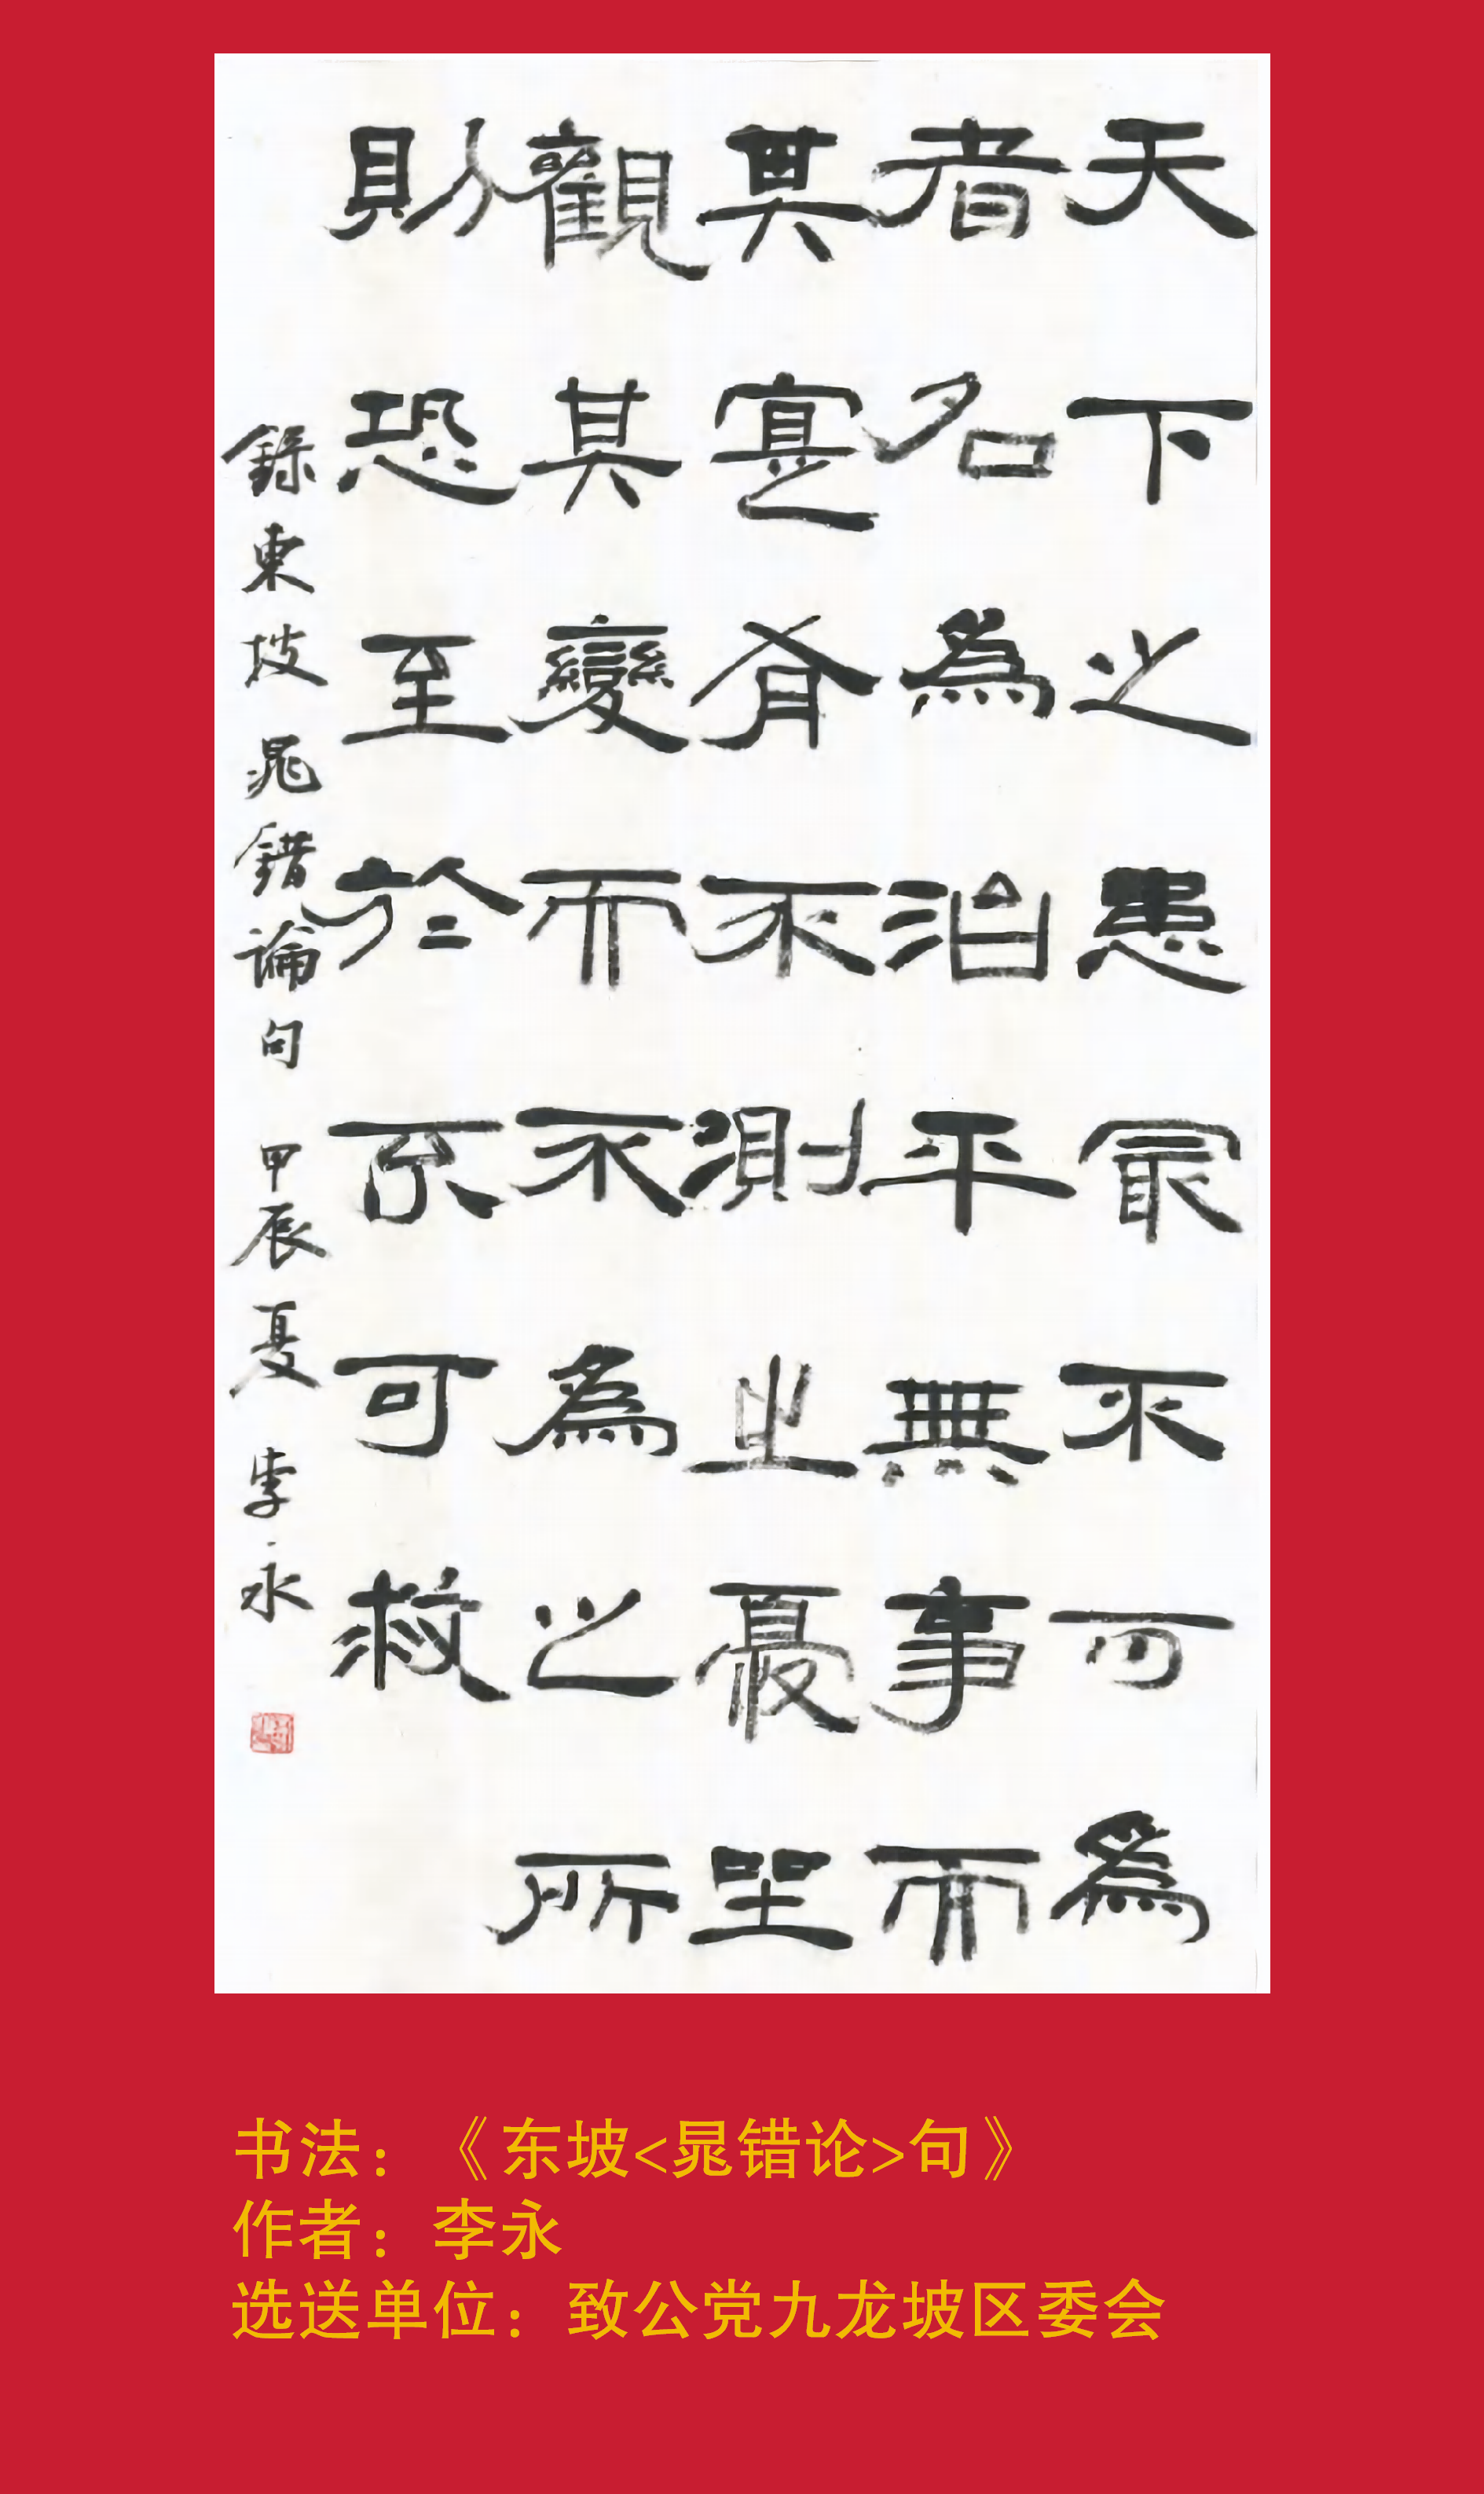 天下之患最不可為
者名為治平無事而
其寔有不測之憂坐
觀其變而不為之所
則恐至於不可救
錄東坡晁錯論句 甲辰夏 李永
书法：《东坡<晁错论>句》
作者：李永
选送单位：致公党九龙坡区委会